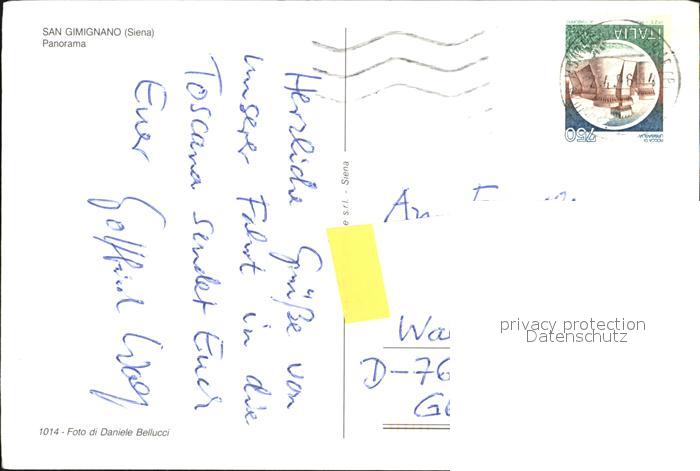 SAN GIMIGNANO (Siena)
Panorama
Herzliche Grüße von
unserer Fahrt in die
Toscana sendet Euch
Euer Gottfried
1014 - Foto di Daniele Bellucci
e s.r.l. - Siena
ITALIA
750
ROCCA DI
URBISAGLIA
An
Wa
D-76
Ge
privacy protection
Datenschutz